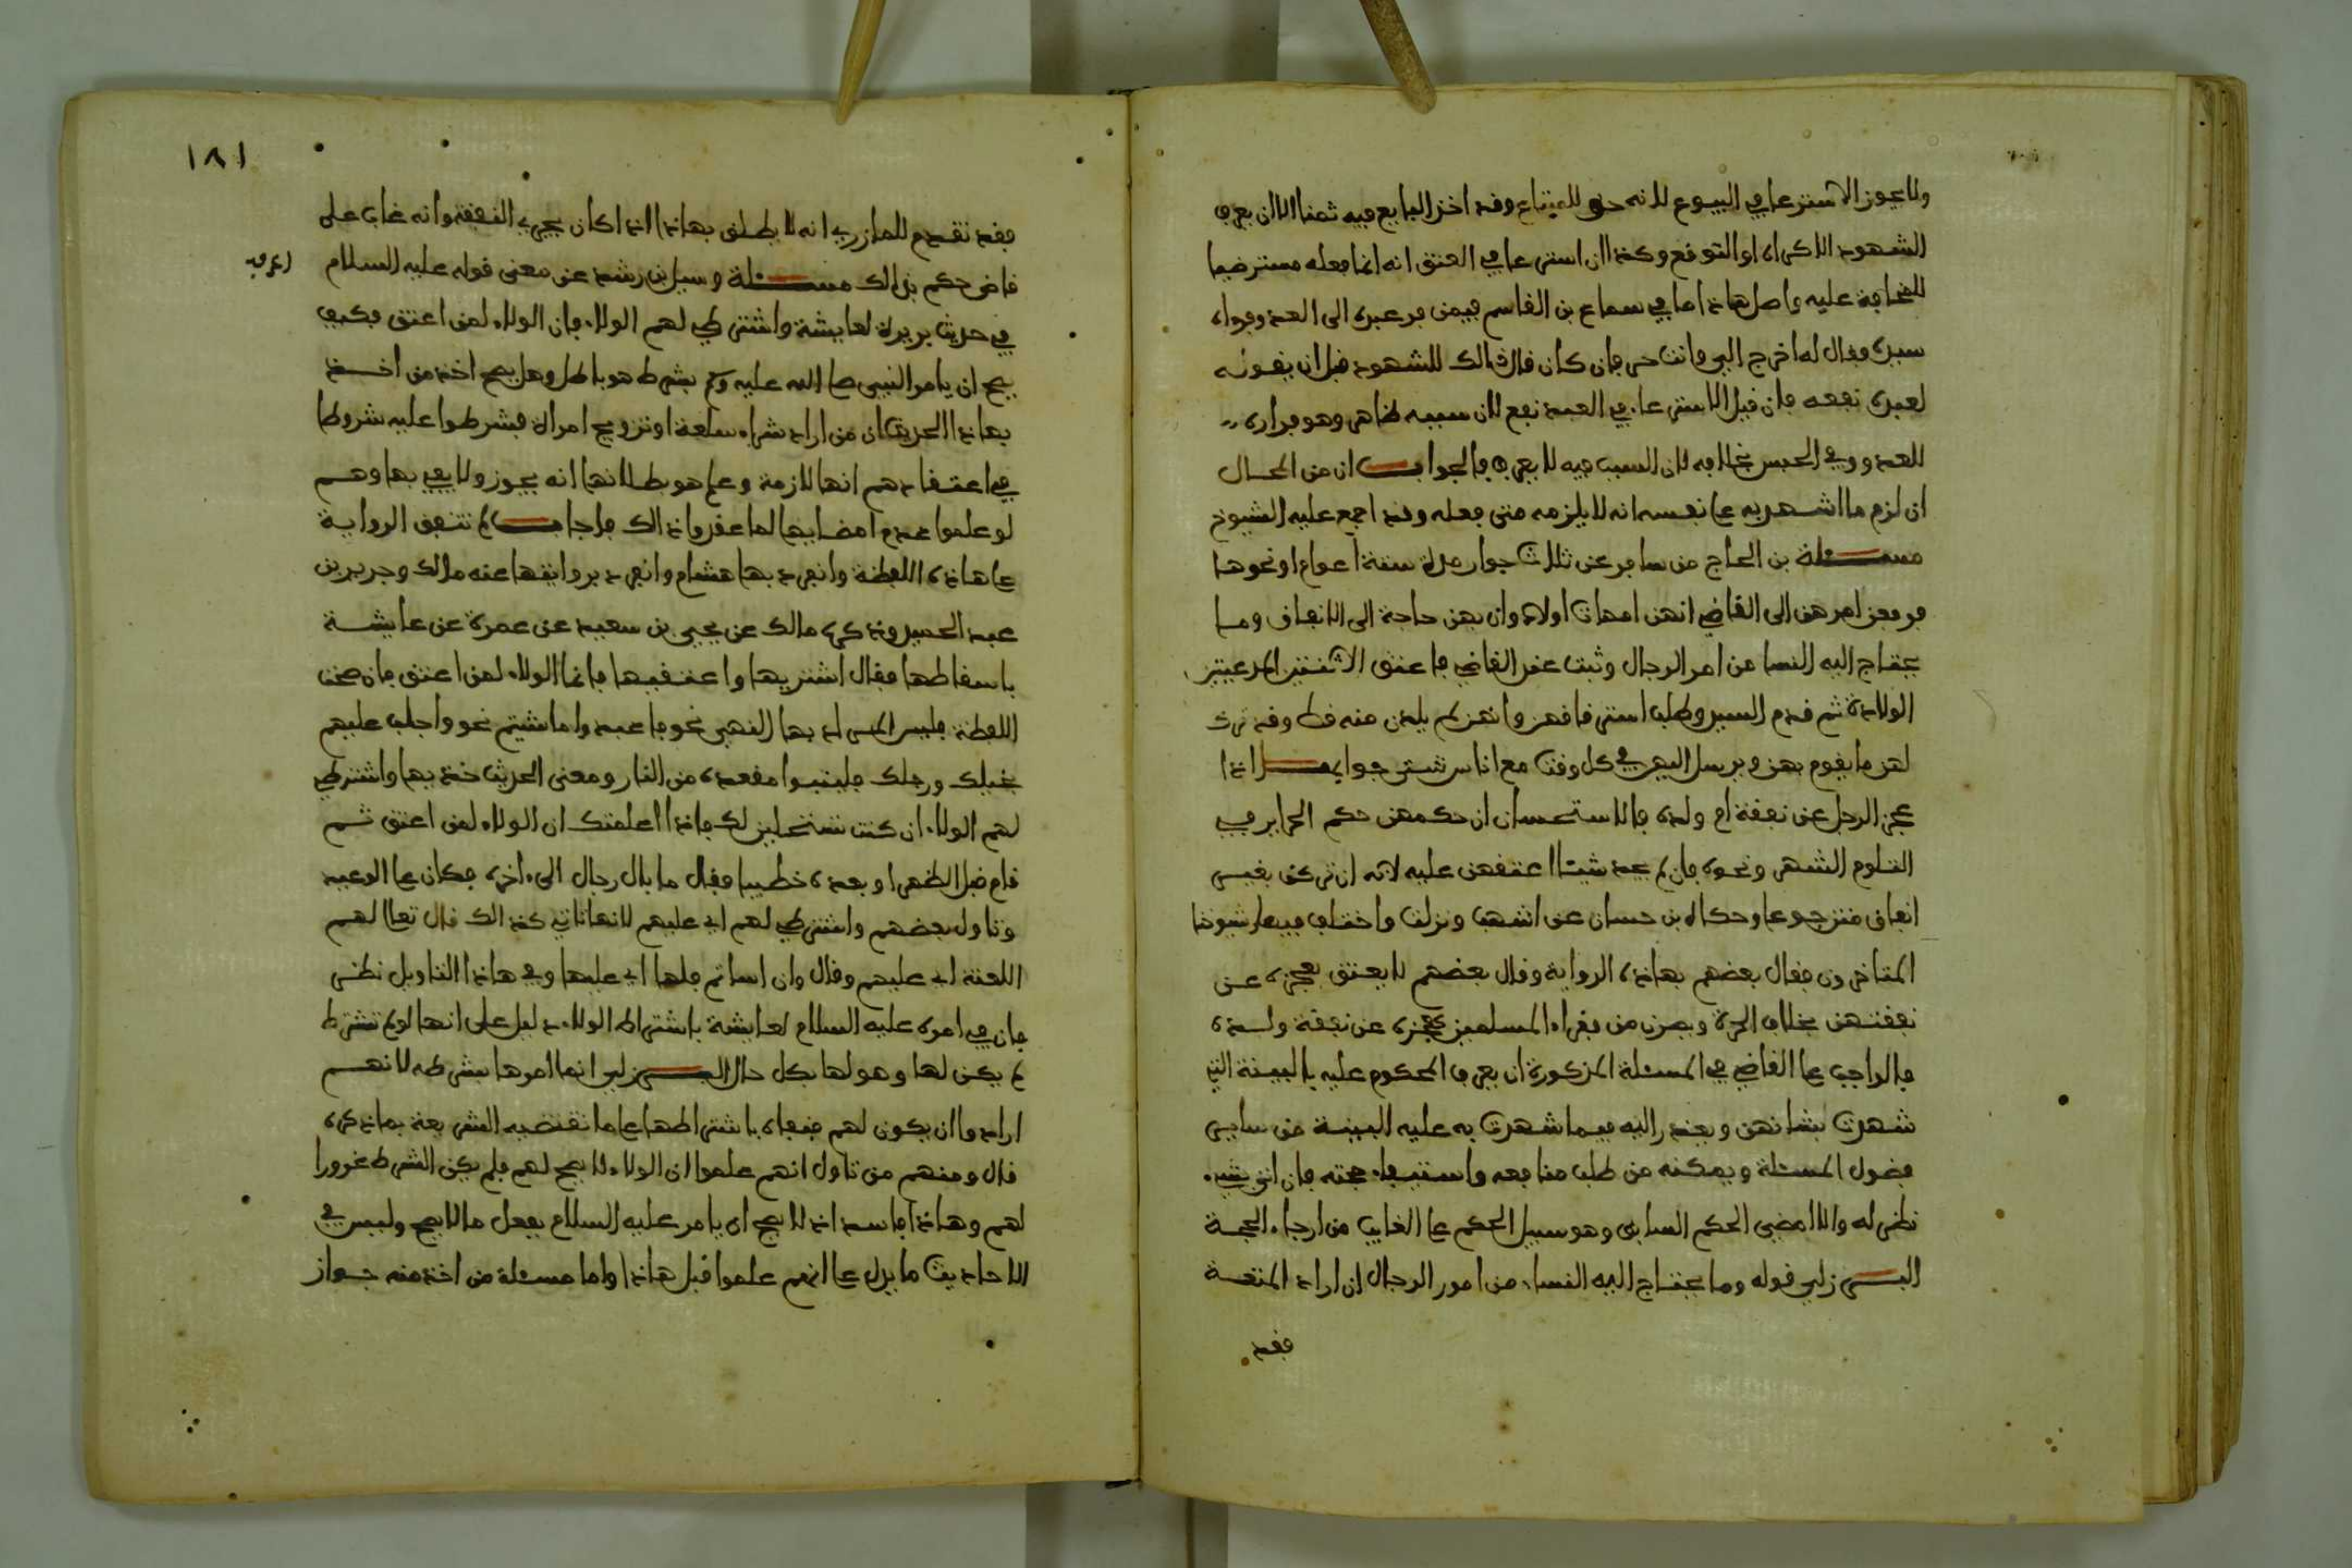 ولا يجوز الاسترعا في البيوع لانه حق للمبتاع وقد اخذ البايع فيه ثمنا الا ان يعرف
الشهود الاكراه او التوقع وكذا ان استرعا في العتق انه انما فعله مسترضيا
للمخافة عليه واصل هاذا ما في سماع بن القاسم فيمن فر عبده الى العدو فرءاه
سيده فقال له اخرج الي وانت حر فان كان قال ذالك للشهود قبل ان يقوله
لعبده نفعه فان قيل الاسترعا في العبد نفع لان سببه ظاهر وهو فراره
للعدو وفي الحبس بخلافه لان السبب فيه لا يعرف فالجواب ان من المحال
ان لزم ما اشهد به على نفسه انه لا يلزمه متى فعله وقد اجمع عليه الشيوخ
مسئلة بن الحاج من سافر عن ثلاث جوار مدة ستة اعوام او نحوها
فرفعن امرهن الى القاضي انهن امهات اولاد وان بهن حاجة الى الانفاق وما
يحتاج اليه النسا من امر الرجال وثبت عند القاضي فاعتق الاثنتين المدعيتين
الولادة ثم قدم السيد وطلب استرقاقهن وانهن لم يلدن منه قط وقد ترك
لهن ما يقوم بهن ويرسل اليهن في كل وقت مع اناس شتى جوابها اذا
عجز الرجل عن نفقة ام ولده فالاستحسان ان حكمهن حكم الحراير في
التلوم الشهر ونحوه فان لم يجد شيئا اعتقهن عليه لانه ان تركن بغير
انفاق متن جوعا وحكاه بن حسان عن اشهب ونزلت واختلف فيها شيوخنا
المتاخرون فقال بعضهم بهاذه الرواية وقال بعضهم لا يعتق بعجزه عن
نفقتهن بخلاف الحرة ويصرن من فقراء المسلمين كعجزه عن نفقة ولده
فالواجب على القاضي في المسئلة المذكورة ان يعرف المحكوم عليه بالبينة التي
شهدت بشانهن ويعذر اليه فيما شهدت به عليه البينة من ساير
فصول المسئلة ويمكنه من طلب منافعه واستيفاء حجته فان اتى بشيء
نظر له والا امضى الحكم السابق وهو سبيل الحكم على الغايب من ارجاء الحجة
البرزلي قوله وما يحتاج اليه النساء من امور الرجال ان اراد المتعة
فقد
١٨١
فقد تقدم للمازري انه لا يطلق بهاذا اذا كان يجري النفقة وانه غاب على
قاض حكم بذالك مسئلة وسيل بن رشد عن معنى قوله عليه السلام
في حديث بريرة لعايشة واشترطي لهم الولاء فان الولاء لمن اعتق فكيف
يصح ان يامر النبي صلى الله عليه وسلم بشرط هو باطل وهل يصح اخذ من اخذ
بهاذا الحديث ان من اراد شراء سلعة او تزويج امراة فشرطوا عليه شروطا
في اعتقادهم انها لازمة وعلم هو بطلانها انه يجوز ولا يفي بها وهم
لو علموا عدم امضايها لما عقدوا ذالك فاجاب لم تتفق الرواية
على هاذه اللفظة وانفرد بها هشام وانفرد بروايتها عنه مالك وجرير بن
عبد الحميد وذكره مالك عن يحيى بن سعيد عن عمرة عن عايشة
باسقاطها فقال اشتريها واعتقيها فانما الولاء لمن اعتق فان صحت
اللفظة فليس المراد بها النهي نحو فاعبدوا ما شيتم نحو واجلب عليهم
بخيلك ورجلك فليتبوا مقعده من النار ومعنى الحديث خذيها واشترطي
لهم الولاء ان كنت تستحلين لك فاذا اعلمتك ان الولاء لمن اعتق ثم
قام قبل الظهر او بعده خطيبا فقال ما بال رجال الى ءاخره فكان على الوعيد
وتاول بعضهم واشترطي لهم اي عليهم لانها تاتي كذالك قال تعالى لهم
اللعنة اي عليهم وقال وان اساتم فلها اي عليها وفي هاذا التاويل نظر
فان في امره عليه السلام لعايشة باشتراط الولاء دليل على انها لو لم تشترط
لم يكن لها وهو لها بكل حال البرزلي انما امرها بشرطه لانهم
ارادوا ان يكون لهم فنفاه باشتراطها على ما تقتضيه الشريعة بما ذكره
قال ومنهم من تاول انهم علموا ان الولاء لا يصح لهم فلم يكن الشرط غرورا
لهم وهاذا فاسد اذ لا يصح ان يامر عليه السلام بفعل ما لا يصح وليس في
الاحاديث ما يدل على انهم علموا قبل هاذا واما مسئلة من اخذ منه جواز